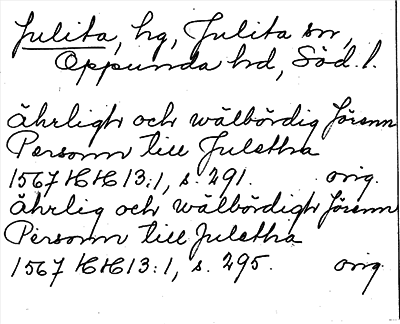 Julita, hg, Julita sn,
Oppunda hd, Söd.l.
Ährligh och wälbördig Jörenn
Personn till Juletha
1567 HH 13:1, s. 291. orig.
Ährlig och wälbördigh Jörenn
Personn till Juletha
1567 HH 13:1, s. 295. orig.